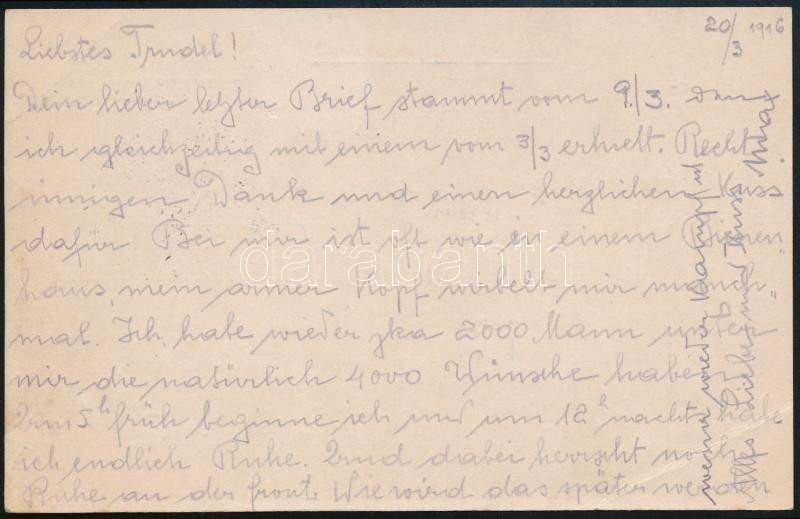 20/3 1916
Liebstes Trudel!
Dein lieber letzter Brief stammt vom 9./3. den
ich gleichzeitig mit einem vom 3/3 erhielt. Recht
innigen Dank und einen herzlichen Kuss
dafür. Bei mir ist oft wie in einem Bienen
haus, mein armer Kopf wirbelt mir manch"
mal. Ich habe wieder zka 2000 Mann unter
mir die natürlich 4000 Wünsche haben
Um 5h früh beginne ich und um 12h nachts habe
ich endlich Ruhe. Und dabei herrscht noch
Ruhe an der Front. Wie wird das später werden
wenn wieder Kampf ist
Alles Liebe und Kuss Max
darabanth